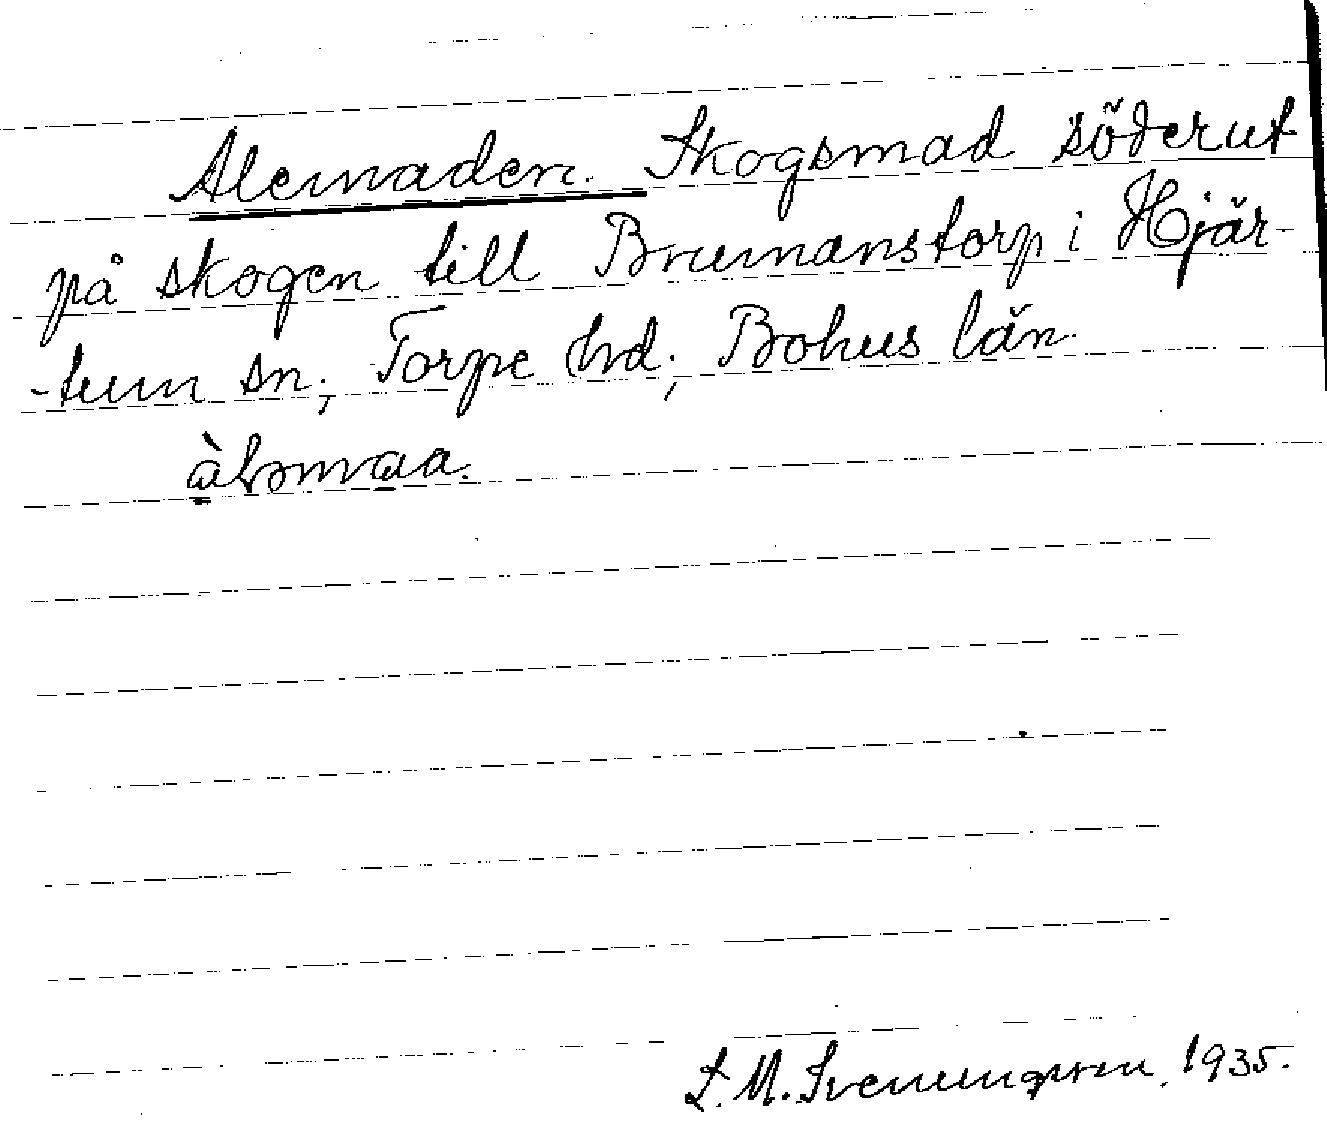 Alemaden. Skogsmad söderut
på skogen till Brumanstorp i Hjär-
-tum sn; Torpe hd; Bohus län.
àləmaa.
L. M. Svenungsson, 1935.